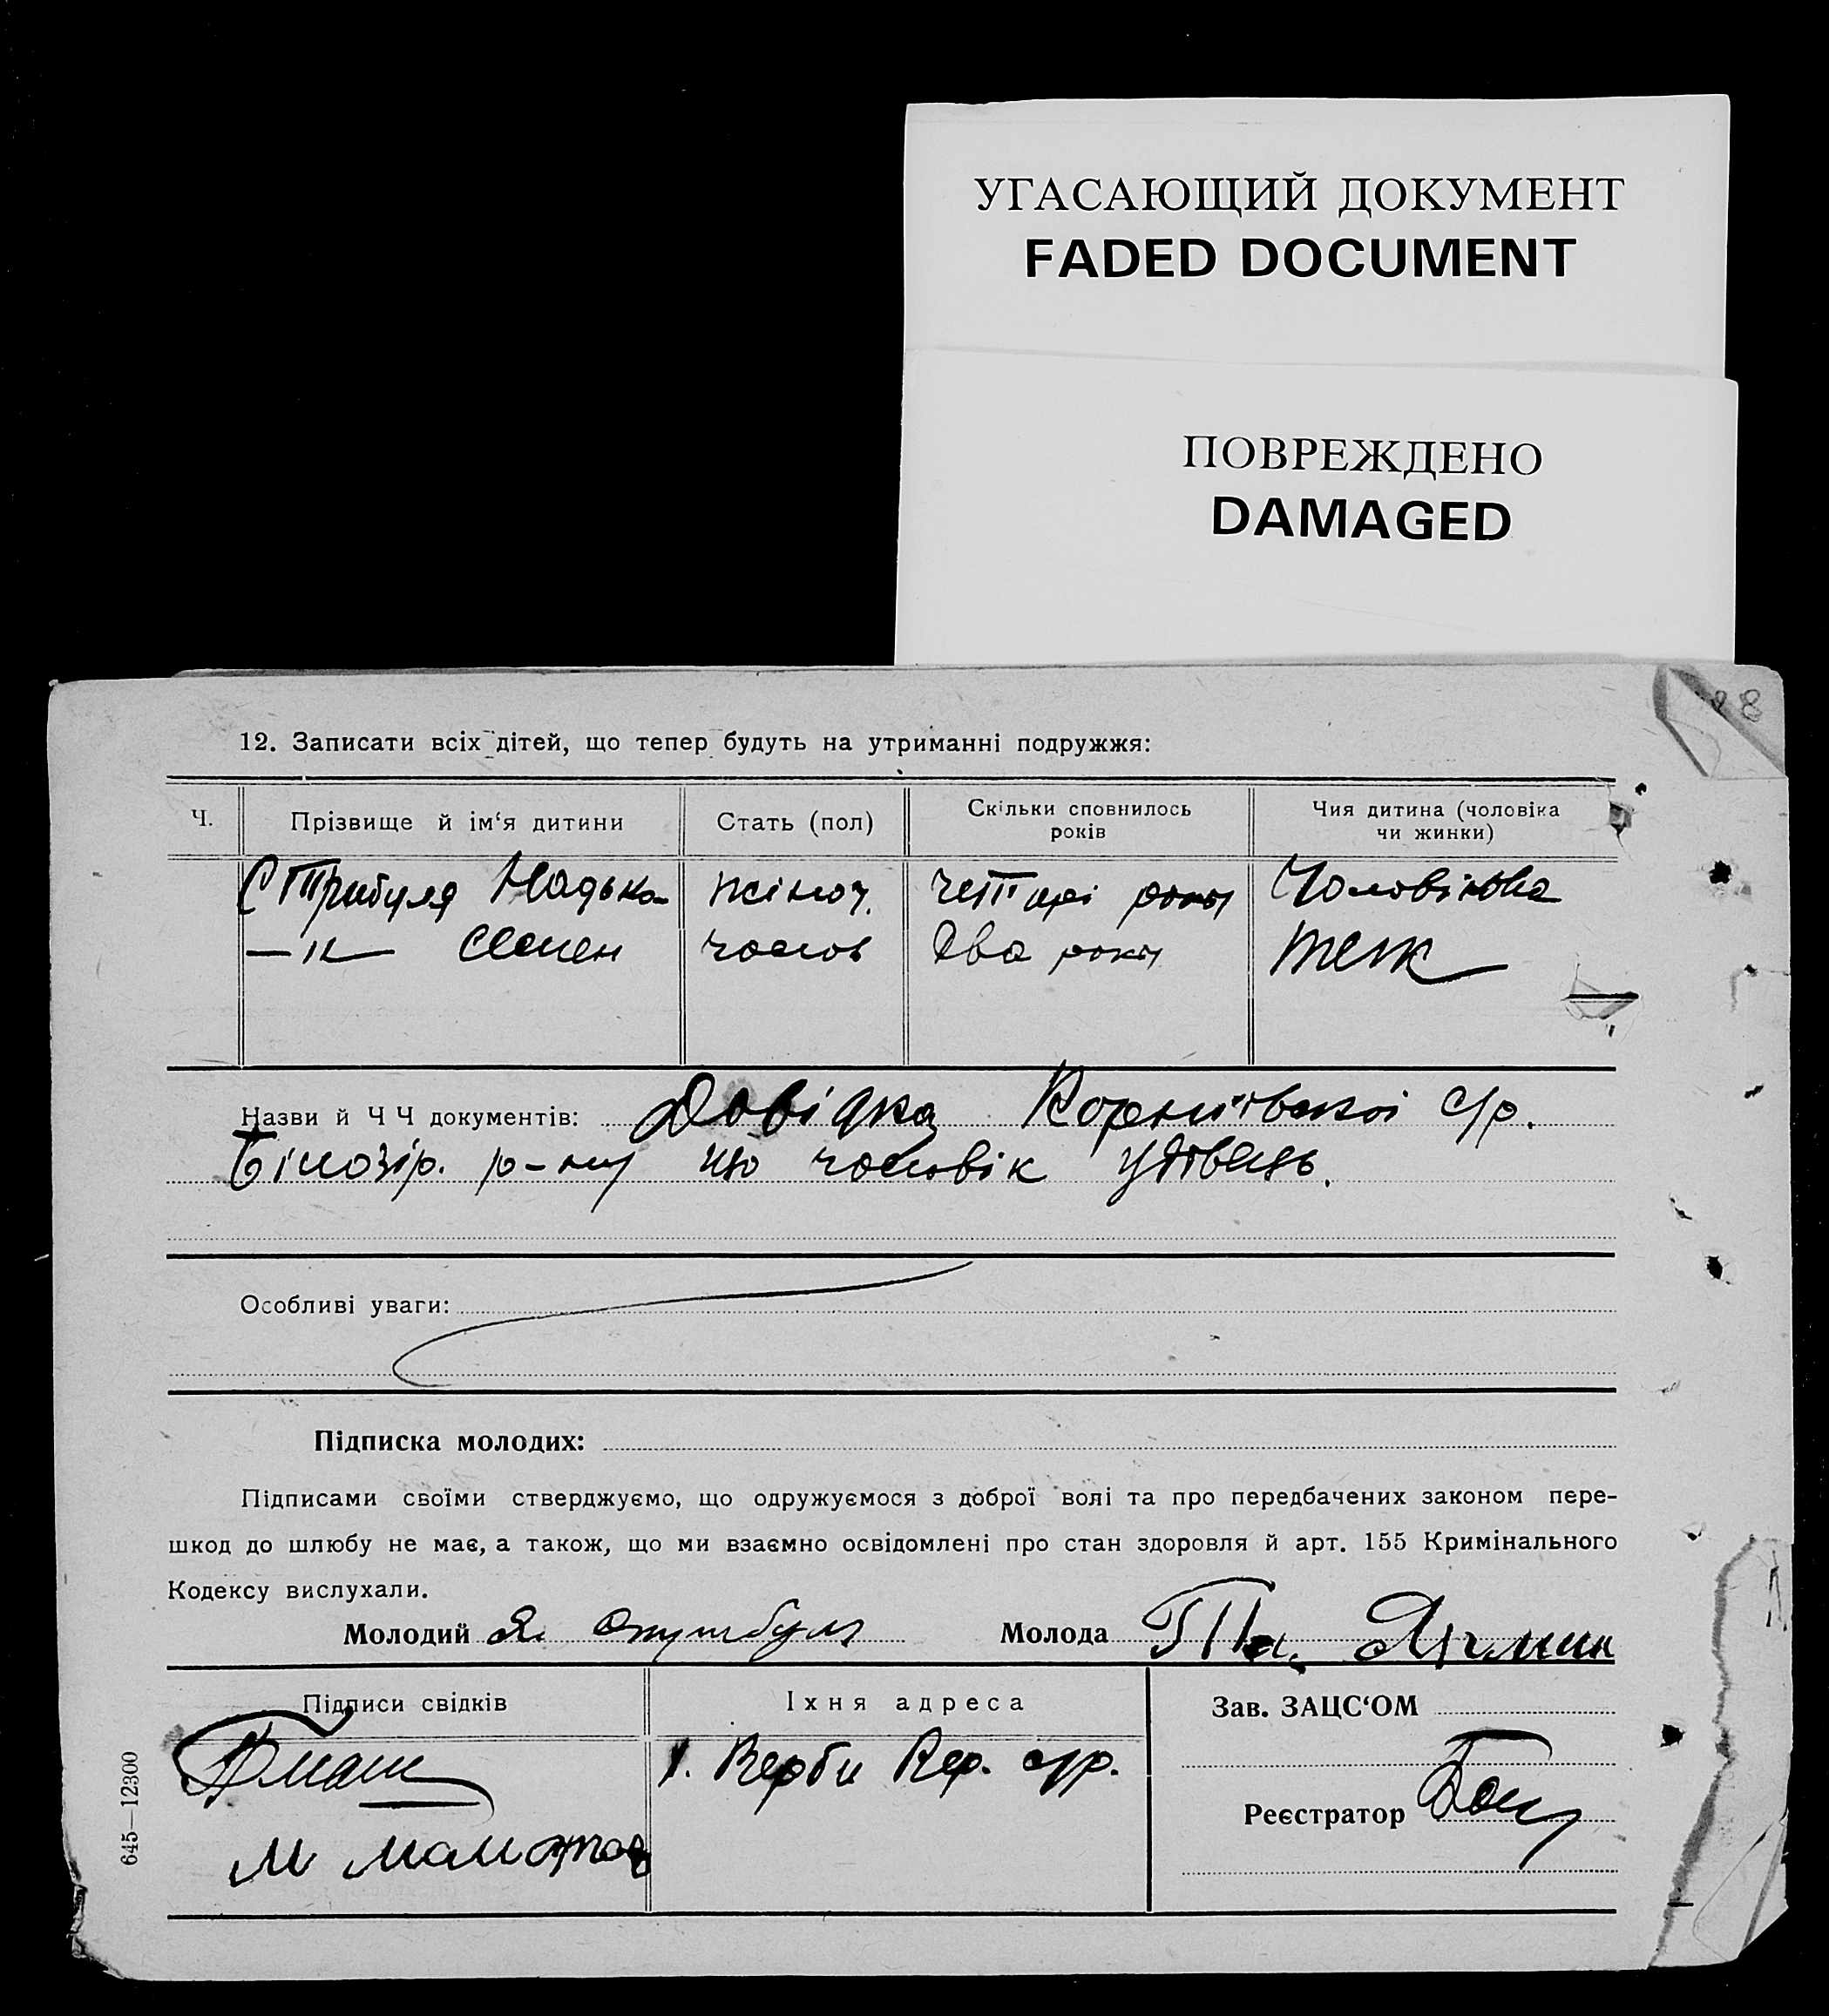 УГАСАЮЩИЙ ДОКУМЕНТ
FADED DOCUMENT
ПОВРЕЖДЕНО
DAMAGED
88
12. Записати всіх дітей, що тепер будуть на утриманні подружжя:
Ч. Прізвище й ім‘я дитини Стать (пол) Скільки сповнилось років Чия дитина (чоловіка чи жинки)
Стрибуля Надька жіноч. четирі роки Чоловікова
—"— Семен чолов два роки теж
Назви й Ч Ч документів: Довідка Корниївської с/р.
Білозір. р-ну що чоловік удівець.
Особливі уваги:
Підписка молодих:
Підписами своїми стверджуємо, що одружуємося з доброї волі та про передбачених законом пере-
шкод до шлюбу не має, а також, що ми взаємно освідомлені про стан здоровля й арт. 155 Кримінального
Кодексу вислухали.
Молодий Молода
Підписи свідків Їхня адреса Зав. ЗАЦС‘ОМ
Верби Вер. с/р.
Реєстратор
645—12300